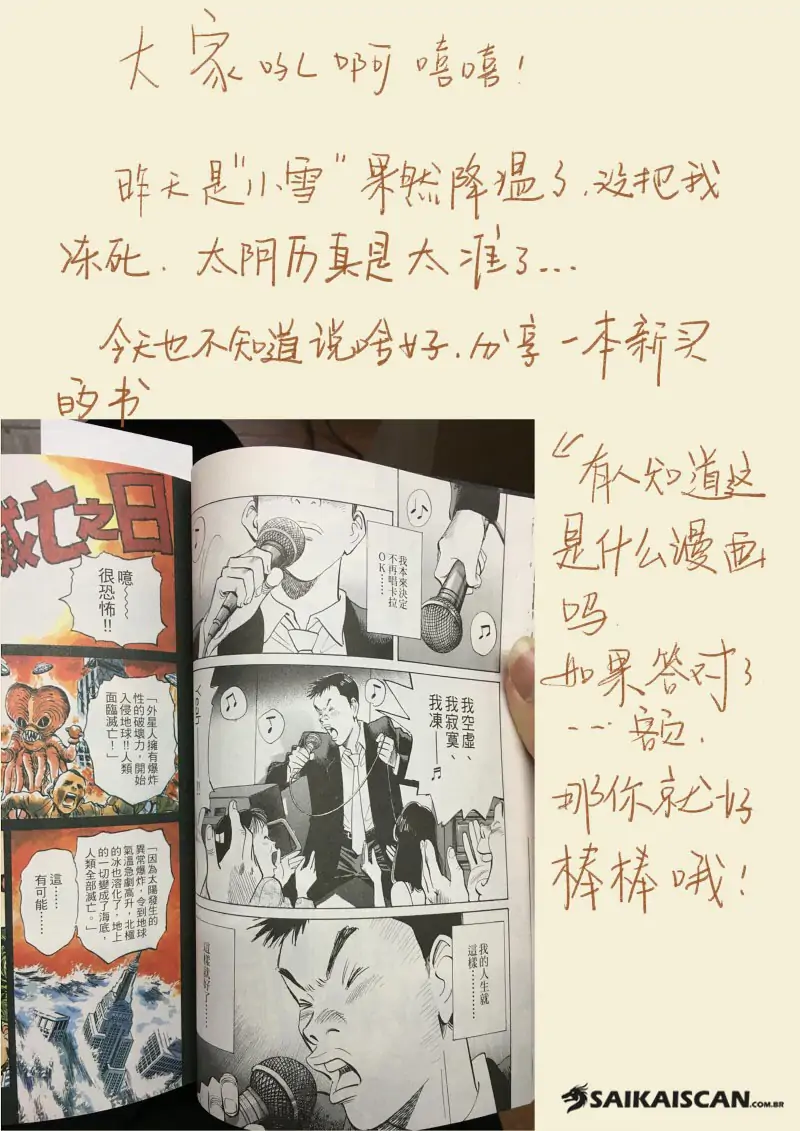 大家吼啊嘻嘻!
昨天是"小雪"果然降温了.没把我
冻死.太阴历真是太准了...
今天也不知道说啥好.分享一本新买
的书
有人知道这
是什么漫画
吗.
如果答对了
...额,
那你就好
棒棒哦!
滅亡之日
噫~~~~
很恐怖!!
「外星人擁有爆炸
性的破壞力,開始
入侵地球!!人類
面臨滅亡!」
「因為太陽發生的
異常爆炸,令到地球
氣溫急劇高升,北極
的冰也溶化了,地上
的一切變成了海底,
人類全部滅亡。」
這……
有可能……
我本來決定
不再唱卡拉
OK……
我空虛、
我寂寞、
我凍—♪
Yeah
!!
我的人生就
這樣……
這樣就好了……
SAIKAISCAN.COM.BR